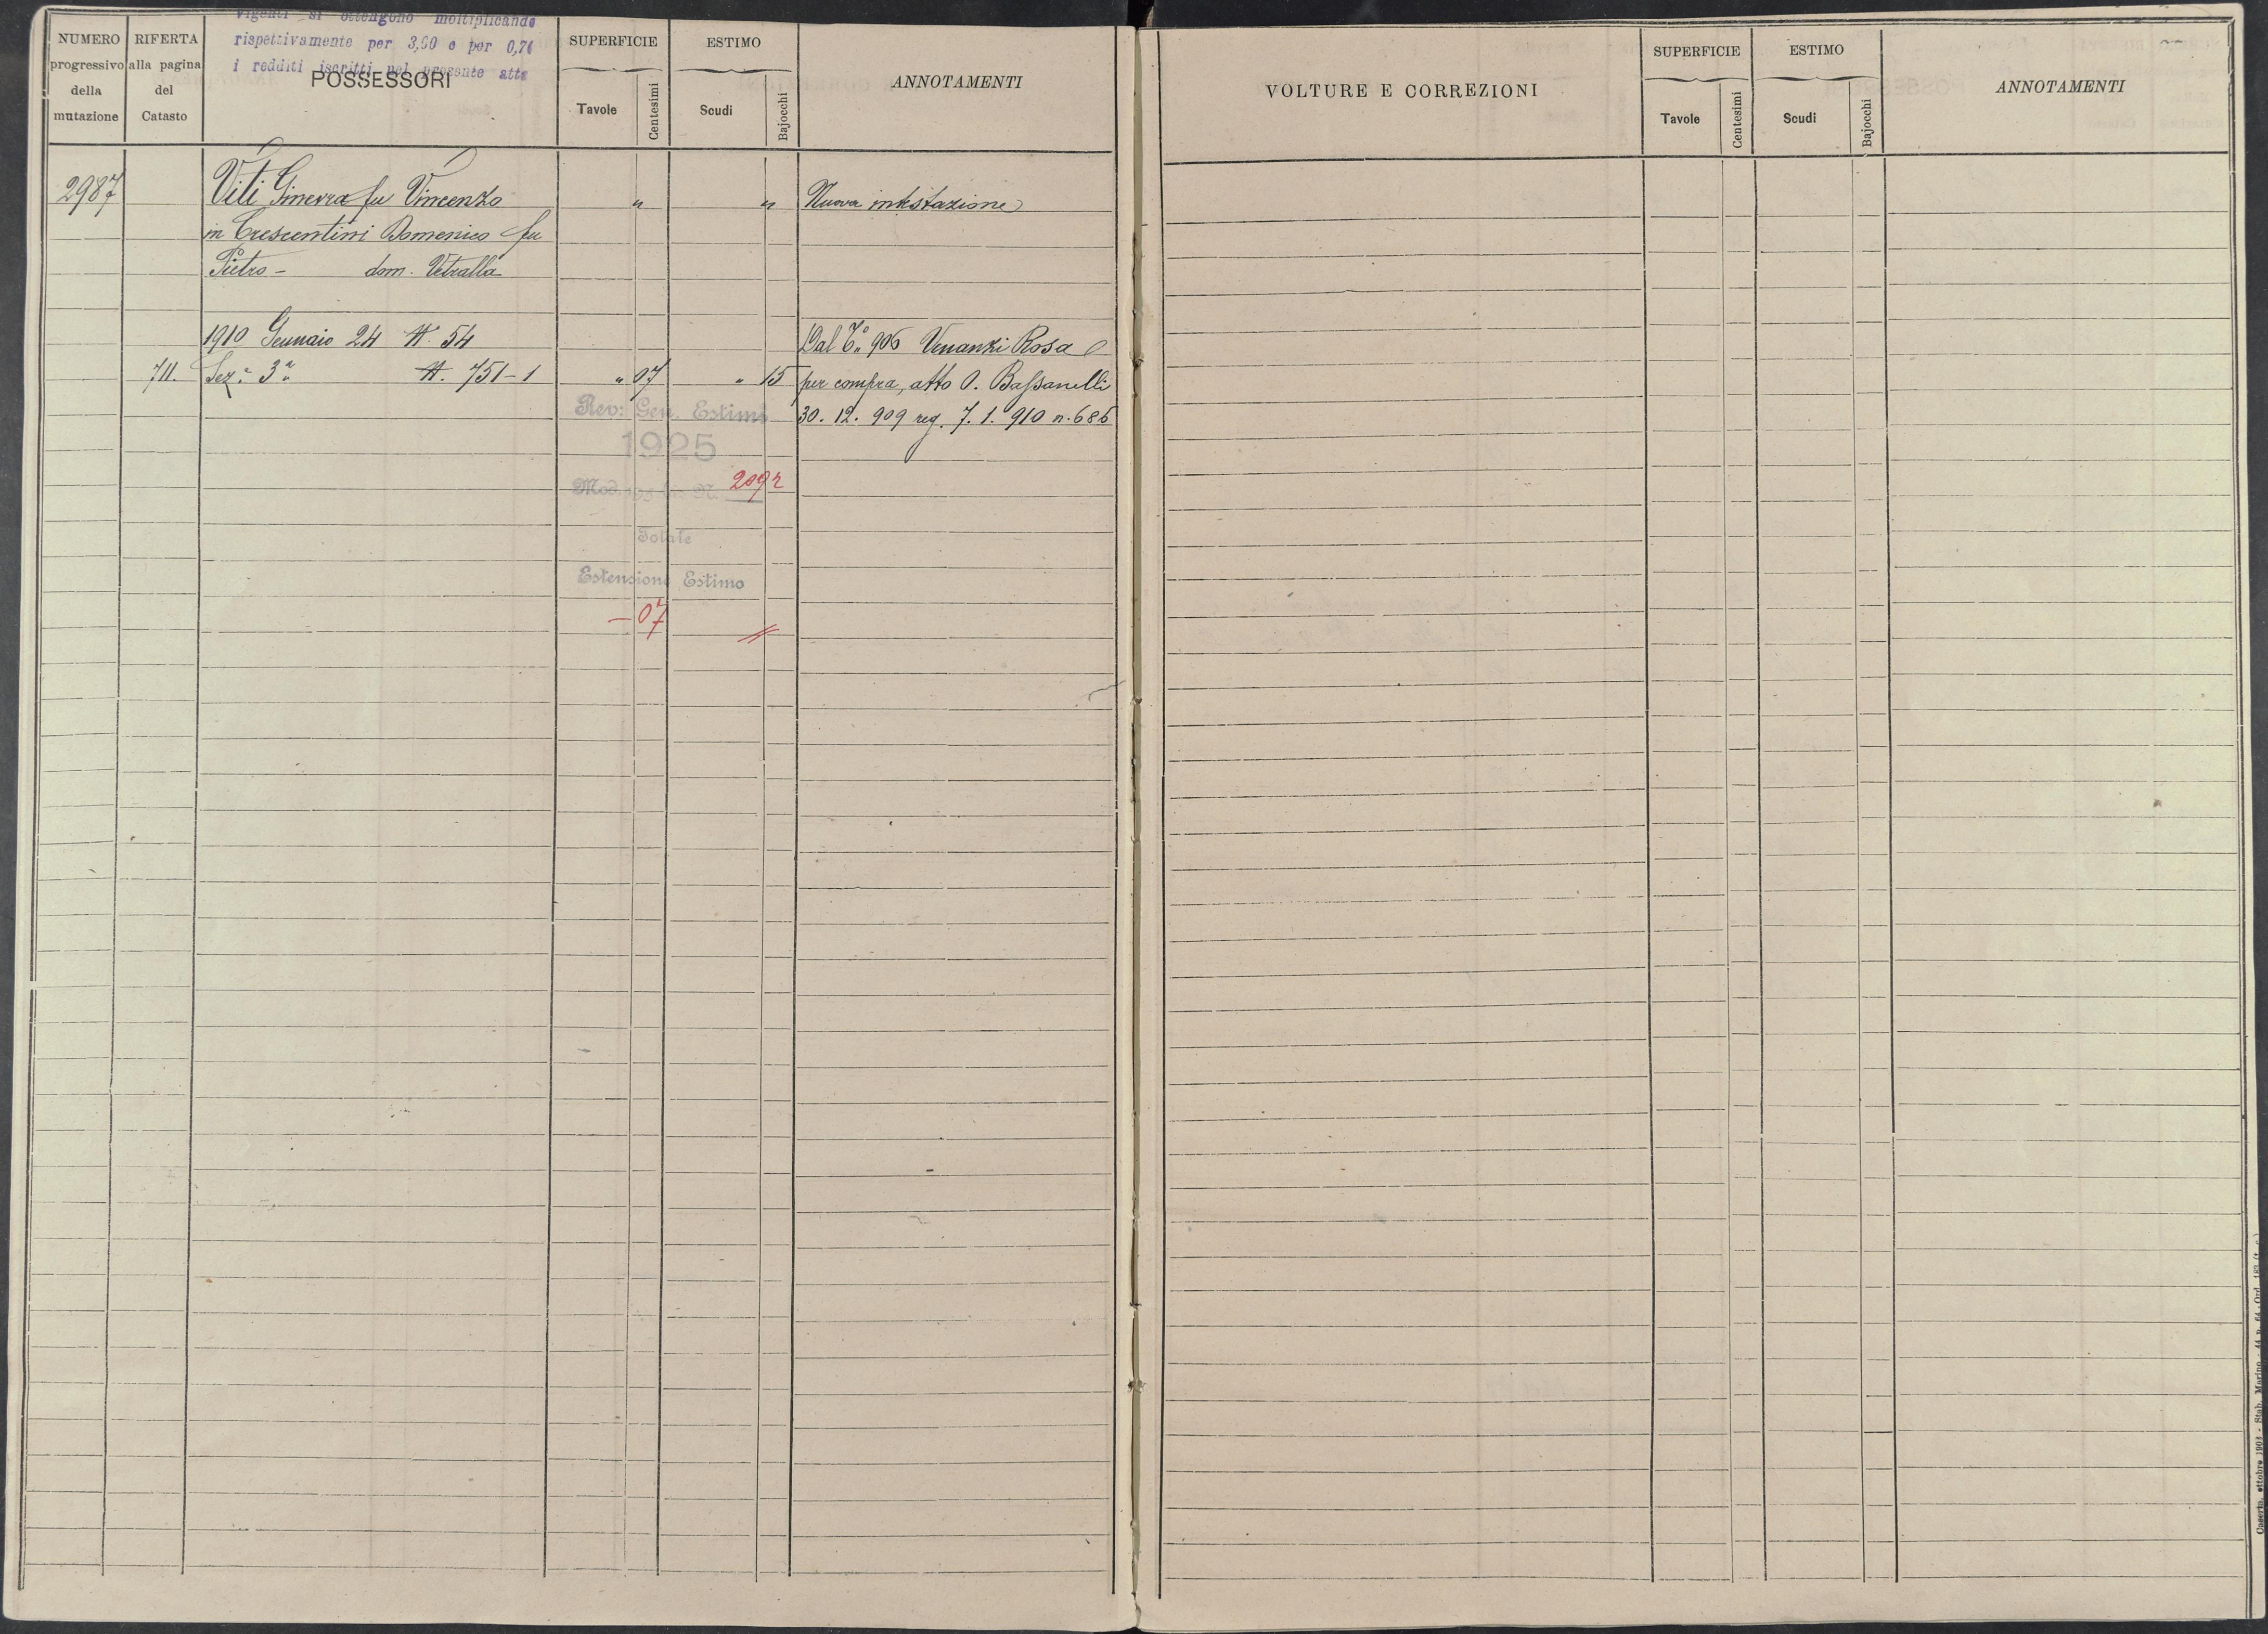 vigenti si ottengono moltiplicando
rispettivamente per 3,90 e per 0,76
i redditi iscritti nel presente atto
NUMERO progressivo della mutazione
RIFERTA alla pagina del Catasto
POSSESSORI
SUPERFICIE
Tavole
Centesimi
ESTIMO
Scudi
Bajocchi
ANNOTAMENTI
2987 Viti Ginevra fu Vincenzo " " Nuova intestazione
in Crescentini Domenico fu
Pietro - dom. Vetralla
1910 Gennaio 24 N. 54 Dal T.° 906 Venanzi Rosa
711. Sez.e 3a N. 751-1 " 07 " 15 per compra, atto O. Bassanelli
Rev: Gen. Estimi 30. 12. 909 reg. 7. 1. 910 n. 685
1925
Mod. N. 2092
Totale
Estensione Estimo
- 07
VOLTURE E CORREZIONI
SUPERFICIE
Tavole
Centesimi
ESTIMO
Scudi
Bajocchi
ANNOTAMENTI
Caserta, ottobre 1901 - Stab. Marino